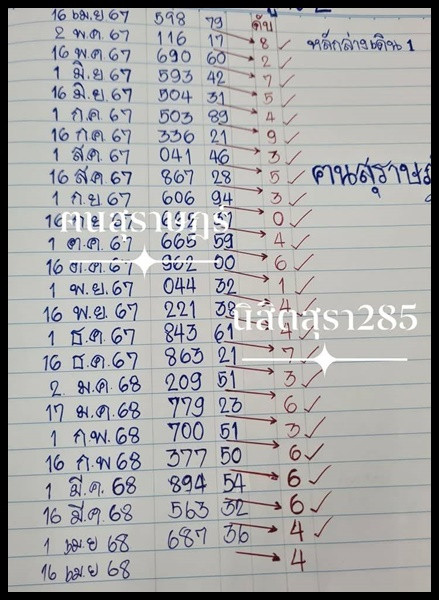 ดับ
16 เม.ย 67 598 79
2 พ.ค. 67 116 17 8 ✓ หลักล่างเดิน 1
16 พ.ค 67 690 60 2 ✓
1 มิ.ย 67 593 42 7 ✓
16 มิ.ย 67 504 31 5 ✓
1 ก.ค 67 503 89 4 ✓
16 ก.ค 67 336 21 9 ✓
1 ส.ค. 67 041 46 3 ✓
16 ส.ค 67 867 28 5 ✓ ฅนสุราษฎ
1 ก.ย 67 606 94 3 ✓
16 67 665 0 ✓
ฅนสุราษฎร์
1 ต.ค. 67 665 59 4 ✓
16 ต.ค. 67 962 00 6 ✓
1 พ.ย 67 044 32 1 ✓
16 พ.ย. 67 221 38 4 ✓
นิสิตสุรา285
1 ธ.ค 67 843 61 4 ✓
16 ธ.ค 67 863 21 7 ✓
2 ม.ค. 68 209 51 3 ✓
17 ม.ค. 68 779 23 6 ✓
1 ก.พ. 68 700 51 3 ✓
16 ก.พ 68 377 50 6 ✓
1 มี.ค. 68 894 54 6 ✓
16 มี.ค. 68 563 32 6 ✓
1 เม.ย 68 687 36 4 ✓
16 เม.ย 68 4